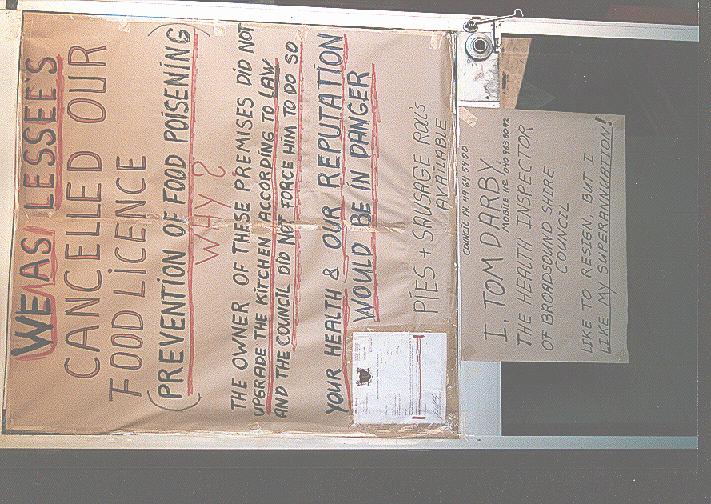 WE AS LESSEE'S
CANCELLED OUR
FOOD LICENCE
(PREVENTION OF FOOD POISENING)
WHY?
THE OWNER OF THESE PREMISES DID NOT
UPGRADE THE KITCHEN ACCORDING TO LAW
AND THE COUNCIL DID NOT FORCE HIM TO DO SO
YOUR HEALTH & OUR REPUTATION
WOULD BE IN DANGER
PIES + SAUSAGE ROLLS
AVAILABLE
I, TOM DARBY
THE HEALTH INSPECTOR
OF BROADSOUND SHIRE
COUNCIL
LIKE TO RESIGN, BUT I
LIKE MY SUPERANNUATION!